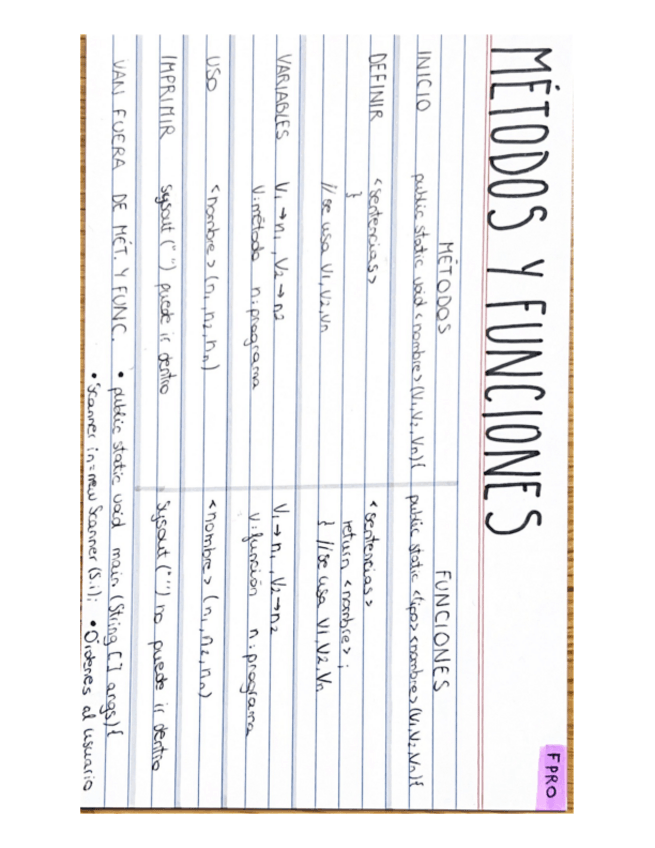 FPRO
MÉTODOS Y FUNCIONES
MÉTODOS FUNCIONES
INICIO public static void <nombre> (V1, V2, Vn){ public static <tipo> <nombre> (V1, V2, Vn){
DEFINIR <sentencias> <sentencias>
} return <nombre>;
// se usa V1, V2, Vn } // se usa V1, V2, Vn
VARIABLES V1 → n1, V2 → n2 V1 → n1, V2 → n2
V: método n: programa V: función n: programa
USO <nombre> (n1, n2, nn) <nombre> (n1, n2, nn)
IMPRIMIR Sysout (" ") puede ir dentro Sysout (" ") no puede ir dentro
VAN FUERA DE MÉT. Y FUNC. • public static void main (String [] args){
• Scanner in = new Scanner (S.i); • Órdenes al usuario